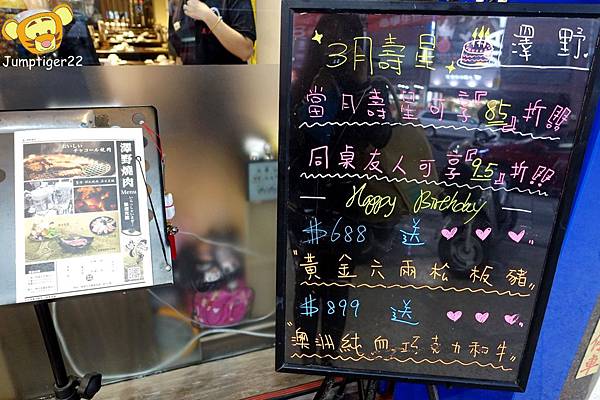 Jumptiger22
おいしい
チャコール焼肉
澤野燒肉
Menu
3月壽星
澤野
當月壽星可享『85』折!!!
同桌友人可享『95』折!!
Happy Birthday
$688 送 ♥ ♥ ♥
"黃金六兩松板豬"
$899 送 ♥ ♥ ♥
"澳洲純血巧克力和牛"